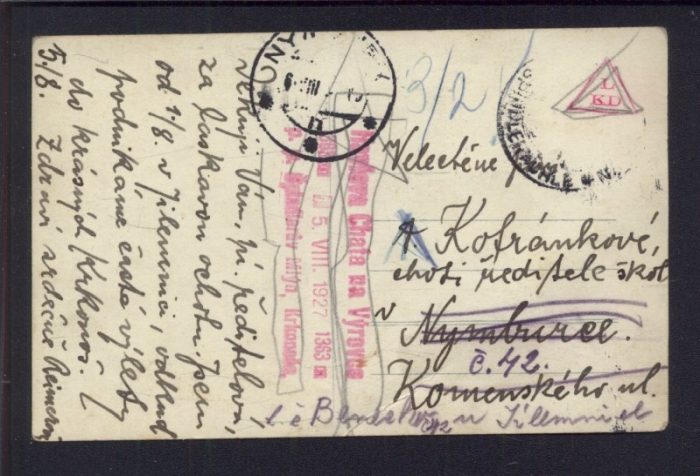 Děkuji Vám, pí. ředitelová,
za laskavou ochotu. Jsem
od 1/8. v Jilemnici, odkud
podnikáme časté výlety
do krásných Krkonoš.
5./8. Zdraví srdečně
Hančova Chata na Výrovce
5. VIII. 1927 1363
Špindlerův Mlýn, Krkonoše
3/2
L
KD
Velectěné
A. Kofránkové,
choti ředitele škol
v Nymburce.
č. 42.
Komenského ul.
u Jilemnice